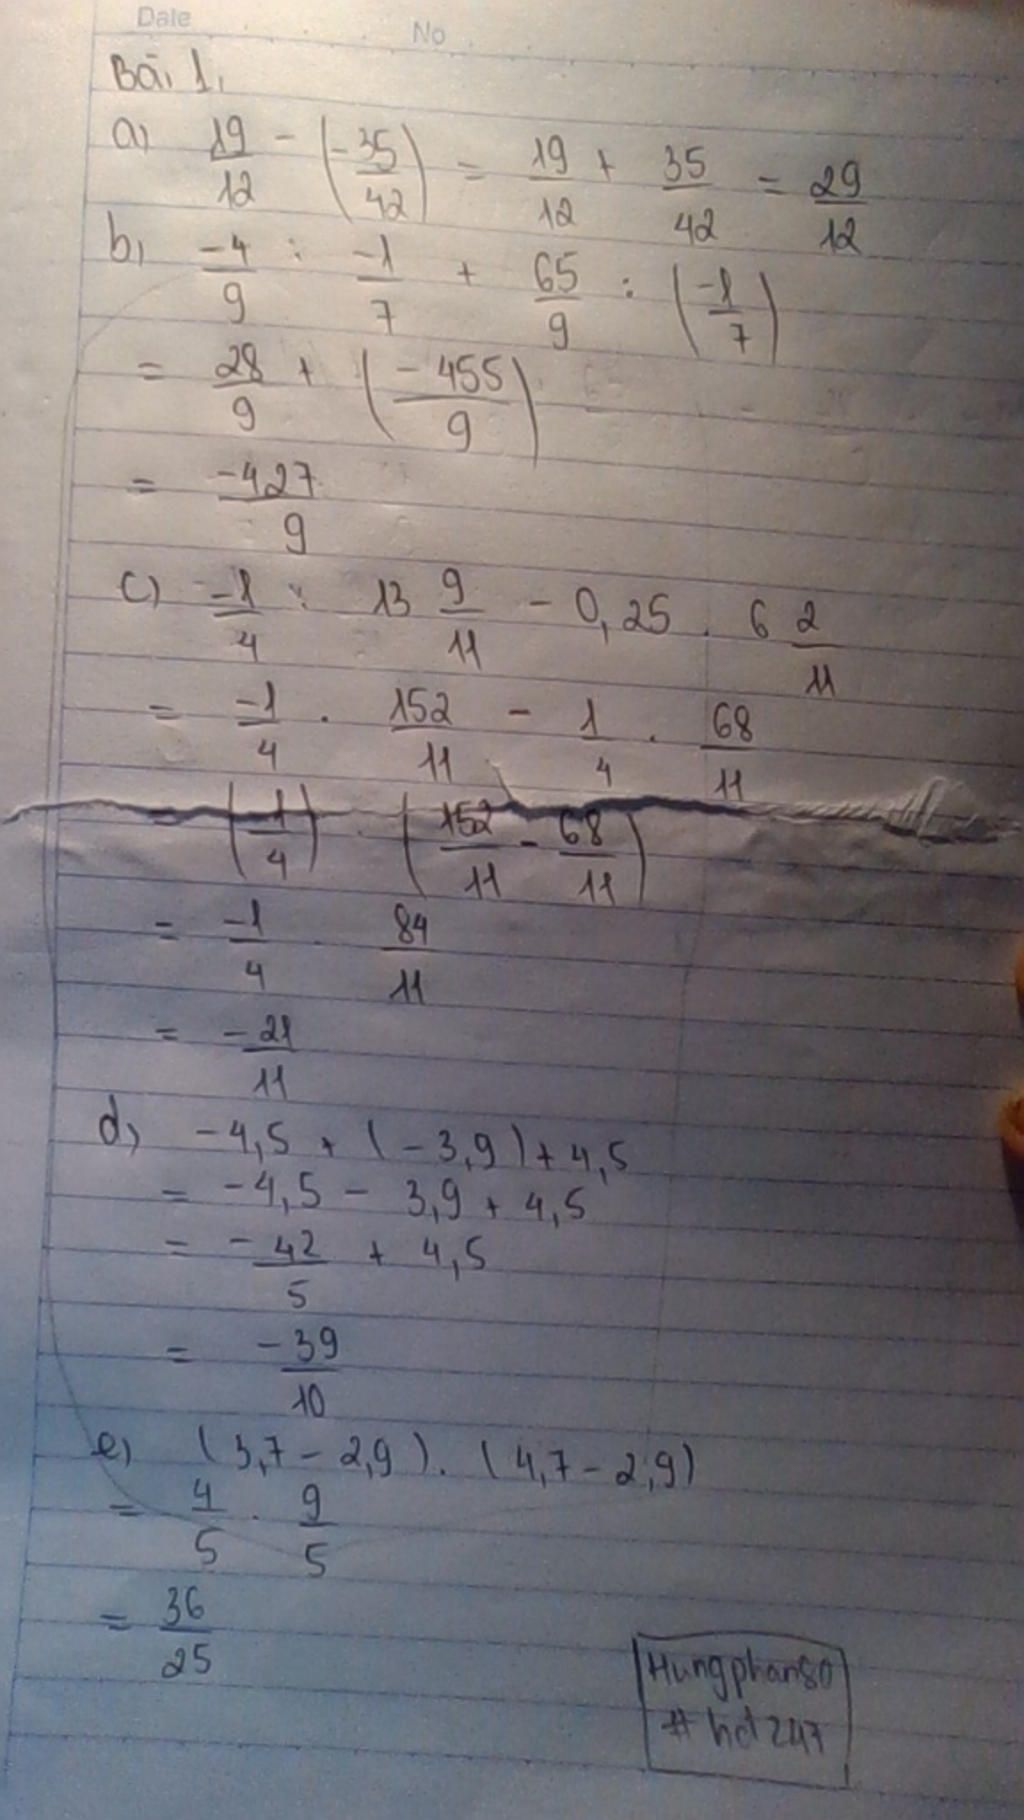 Date No
Bài 1.
a) 19/12 - (-35/42) = 19/12 + 35/42 = 29/12
b) -4/9 : -1/7 + 65/9 : (-1/7)
= 28/9 + (-455/9)
= -427/9
c) -1/4 : 13 9/11 - 0,25 . 6 2/11
= -1/4 . 152/11 - 1/4 . 68/11
= (1/4) . (152/11 - 68/11)
= -1/4 . 84/11
= -21/11
d) -4,5 + (-3,9) + 4,5
= -4,5 - 3,9 + 4,5
= -42/5 + 4,5
= -39/10
e) (3,7 - 2,9) . (4,7 - 2,9)
= 4/5 . 9/5
= 36/25
Hungphan80
# hdt247